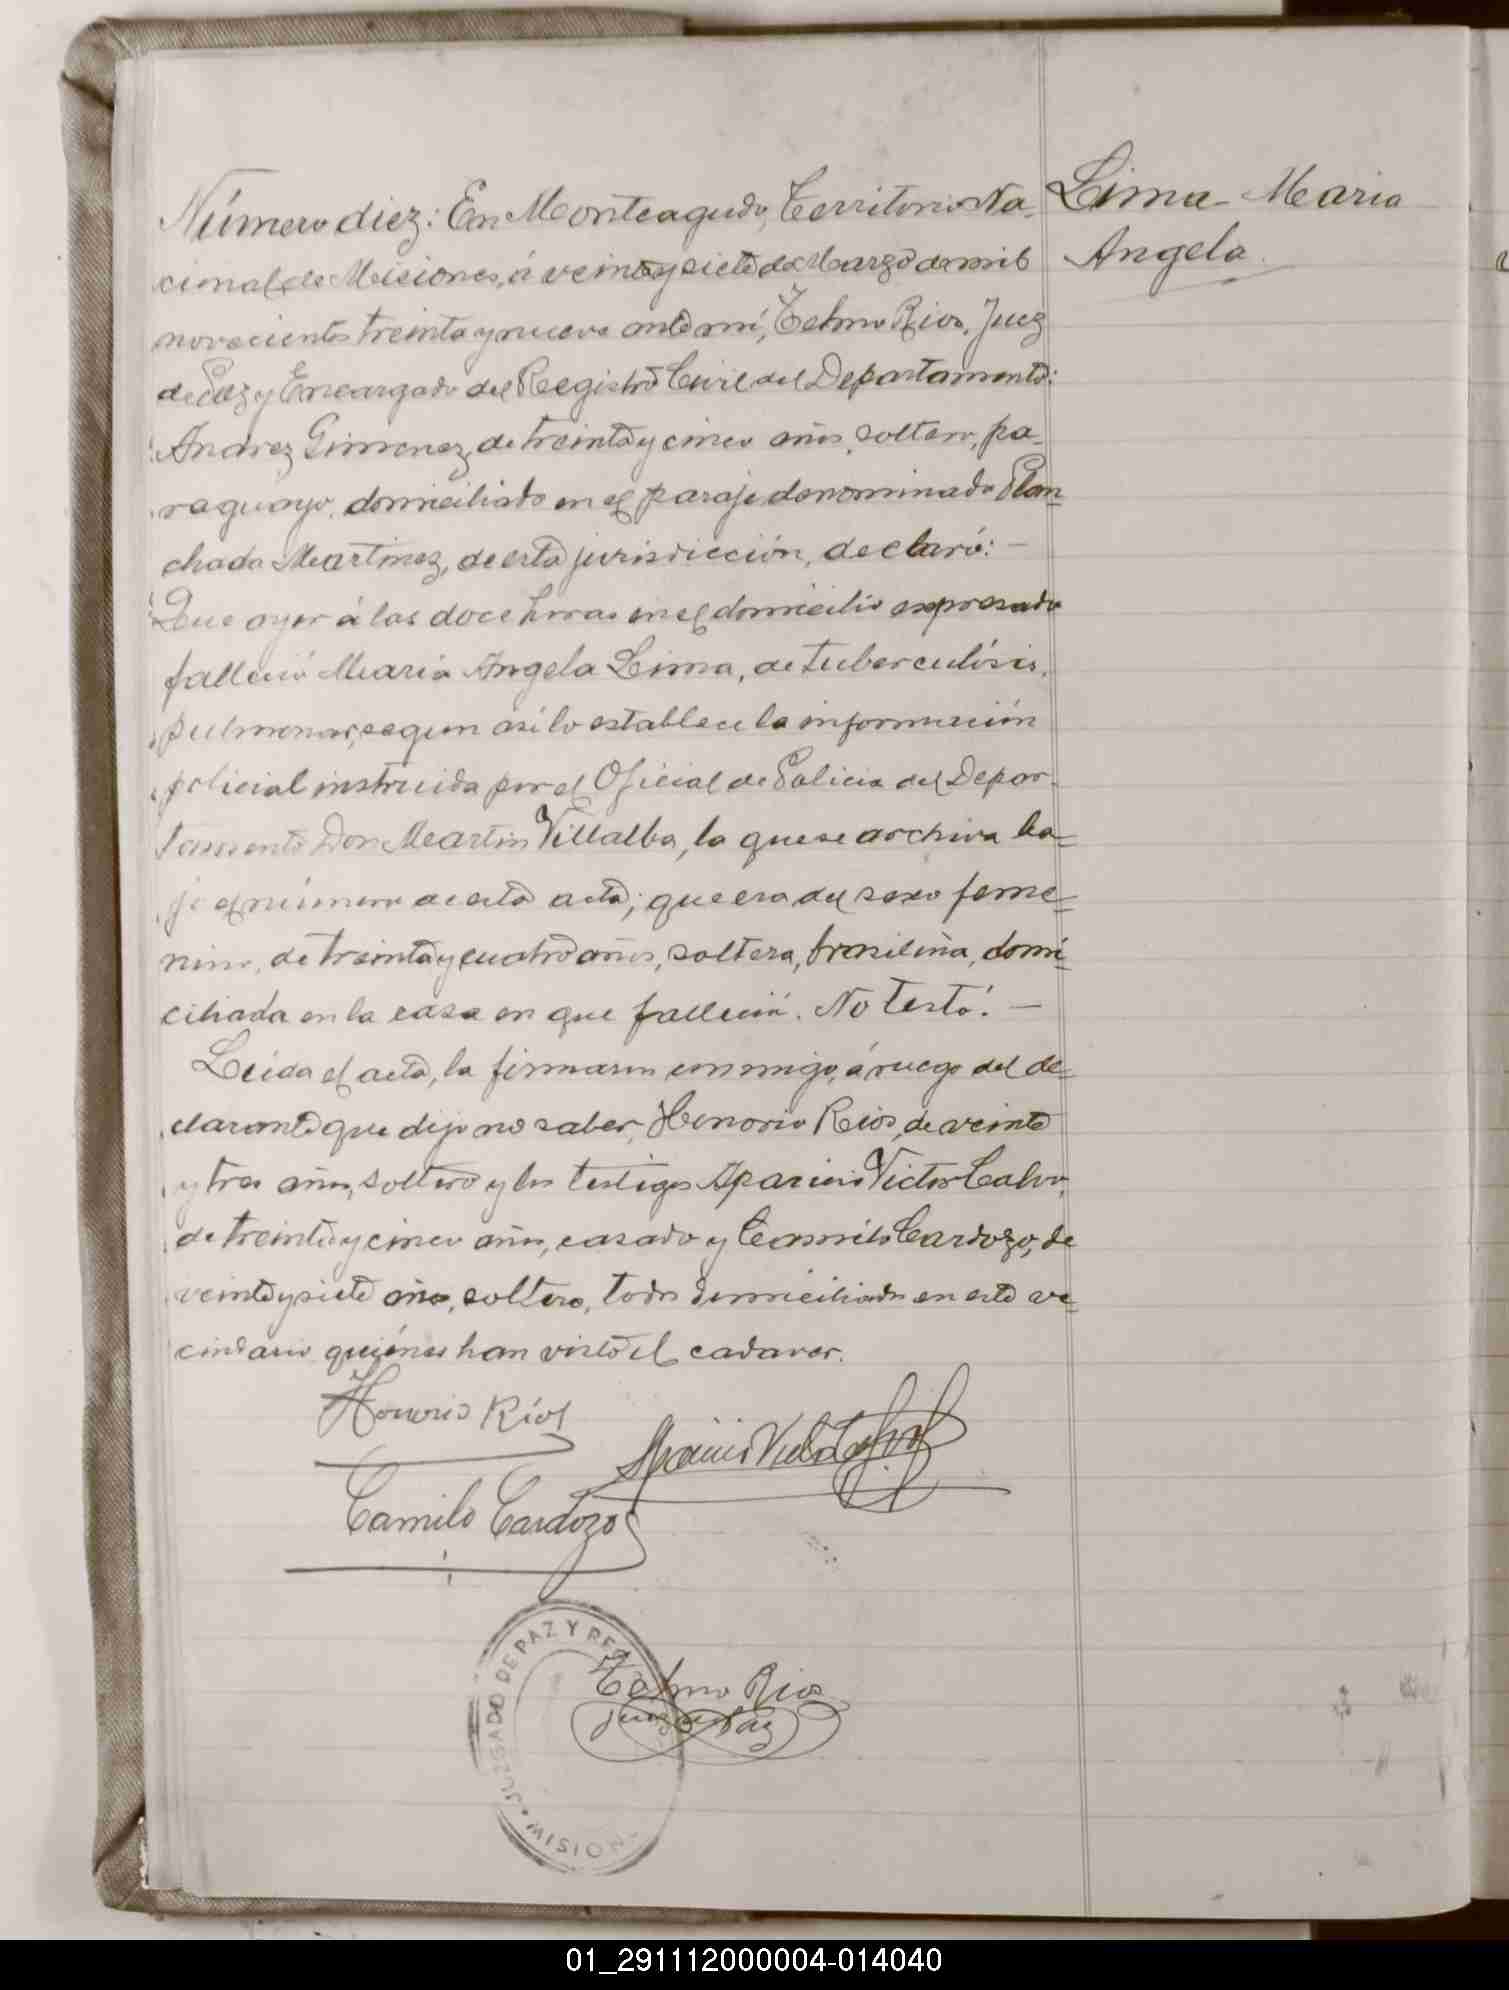 Lima Maria
Angela
Número diez: En Monteagudo, Territorio Na-
cional de Misiones, á veinte y siete de Marzo de mil
novecientos treinta y nueve ante mí, Telmo Rios, Juez
de Paz y Encargado del Registro Civil del Departamento:
Andrez Gimenez, de treinta y cinco años, soltero, pa-
raguayo, domiciliado en el paraje denominado Plan-
chada Martinez, de esta jurisdicción, declaró: —
Que ayer á las doce horas en el domicilio expresado
falleció Maria Angela Lima, de tuberculósis
pulmonar, segun así lo establece la información
policial instruida por el Oficial de Policia del Depar-
tamento Don Martin Villalba, la que se archiva ba-
jo el número de esta acta; que era del sexo feme-
nino, de treinta y cuatro años, soltera, brasileña, domi-
ciliada en la casa en que falleció. No testó. —
Leída el acta, la firmaron conmigo, á ruego del de-
clarante que dijo no saber, Honorio Rios, de veinte
y tres años, soltero y los testigos Aparicio Victor Calvo,
de treinta y cinco años, casado y Camilo Cardozo, de
veinte y siete años, soltero, todos domiciliados en este ve-
cindario quiénes han visto el cadaver.
Honorio Ríos
Camilo Cardozo
JUZGADO DE PAZ Y REG
MISION
Telmo Rios
Juez de Paz
01_291112000004-014040